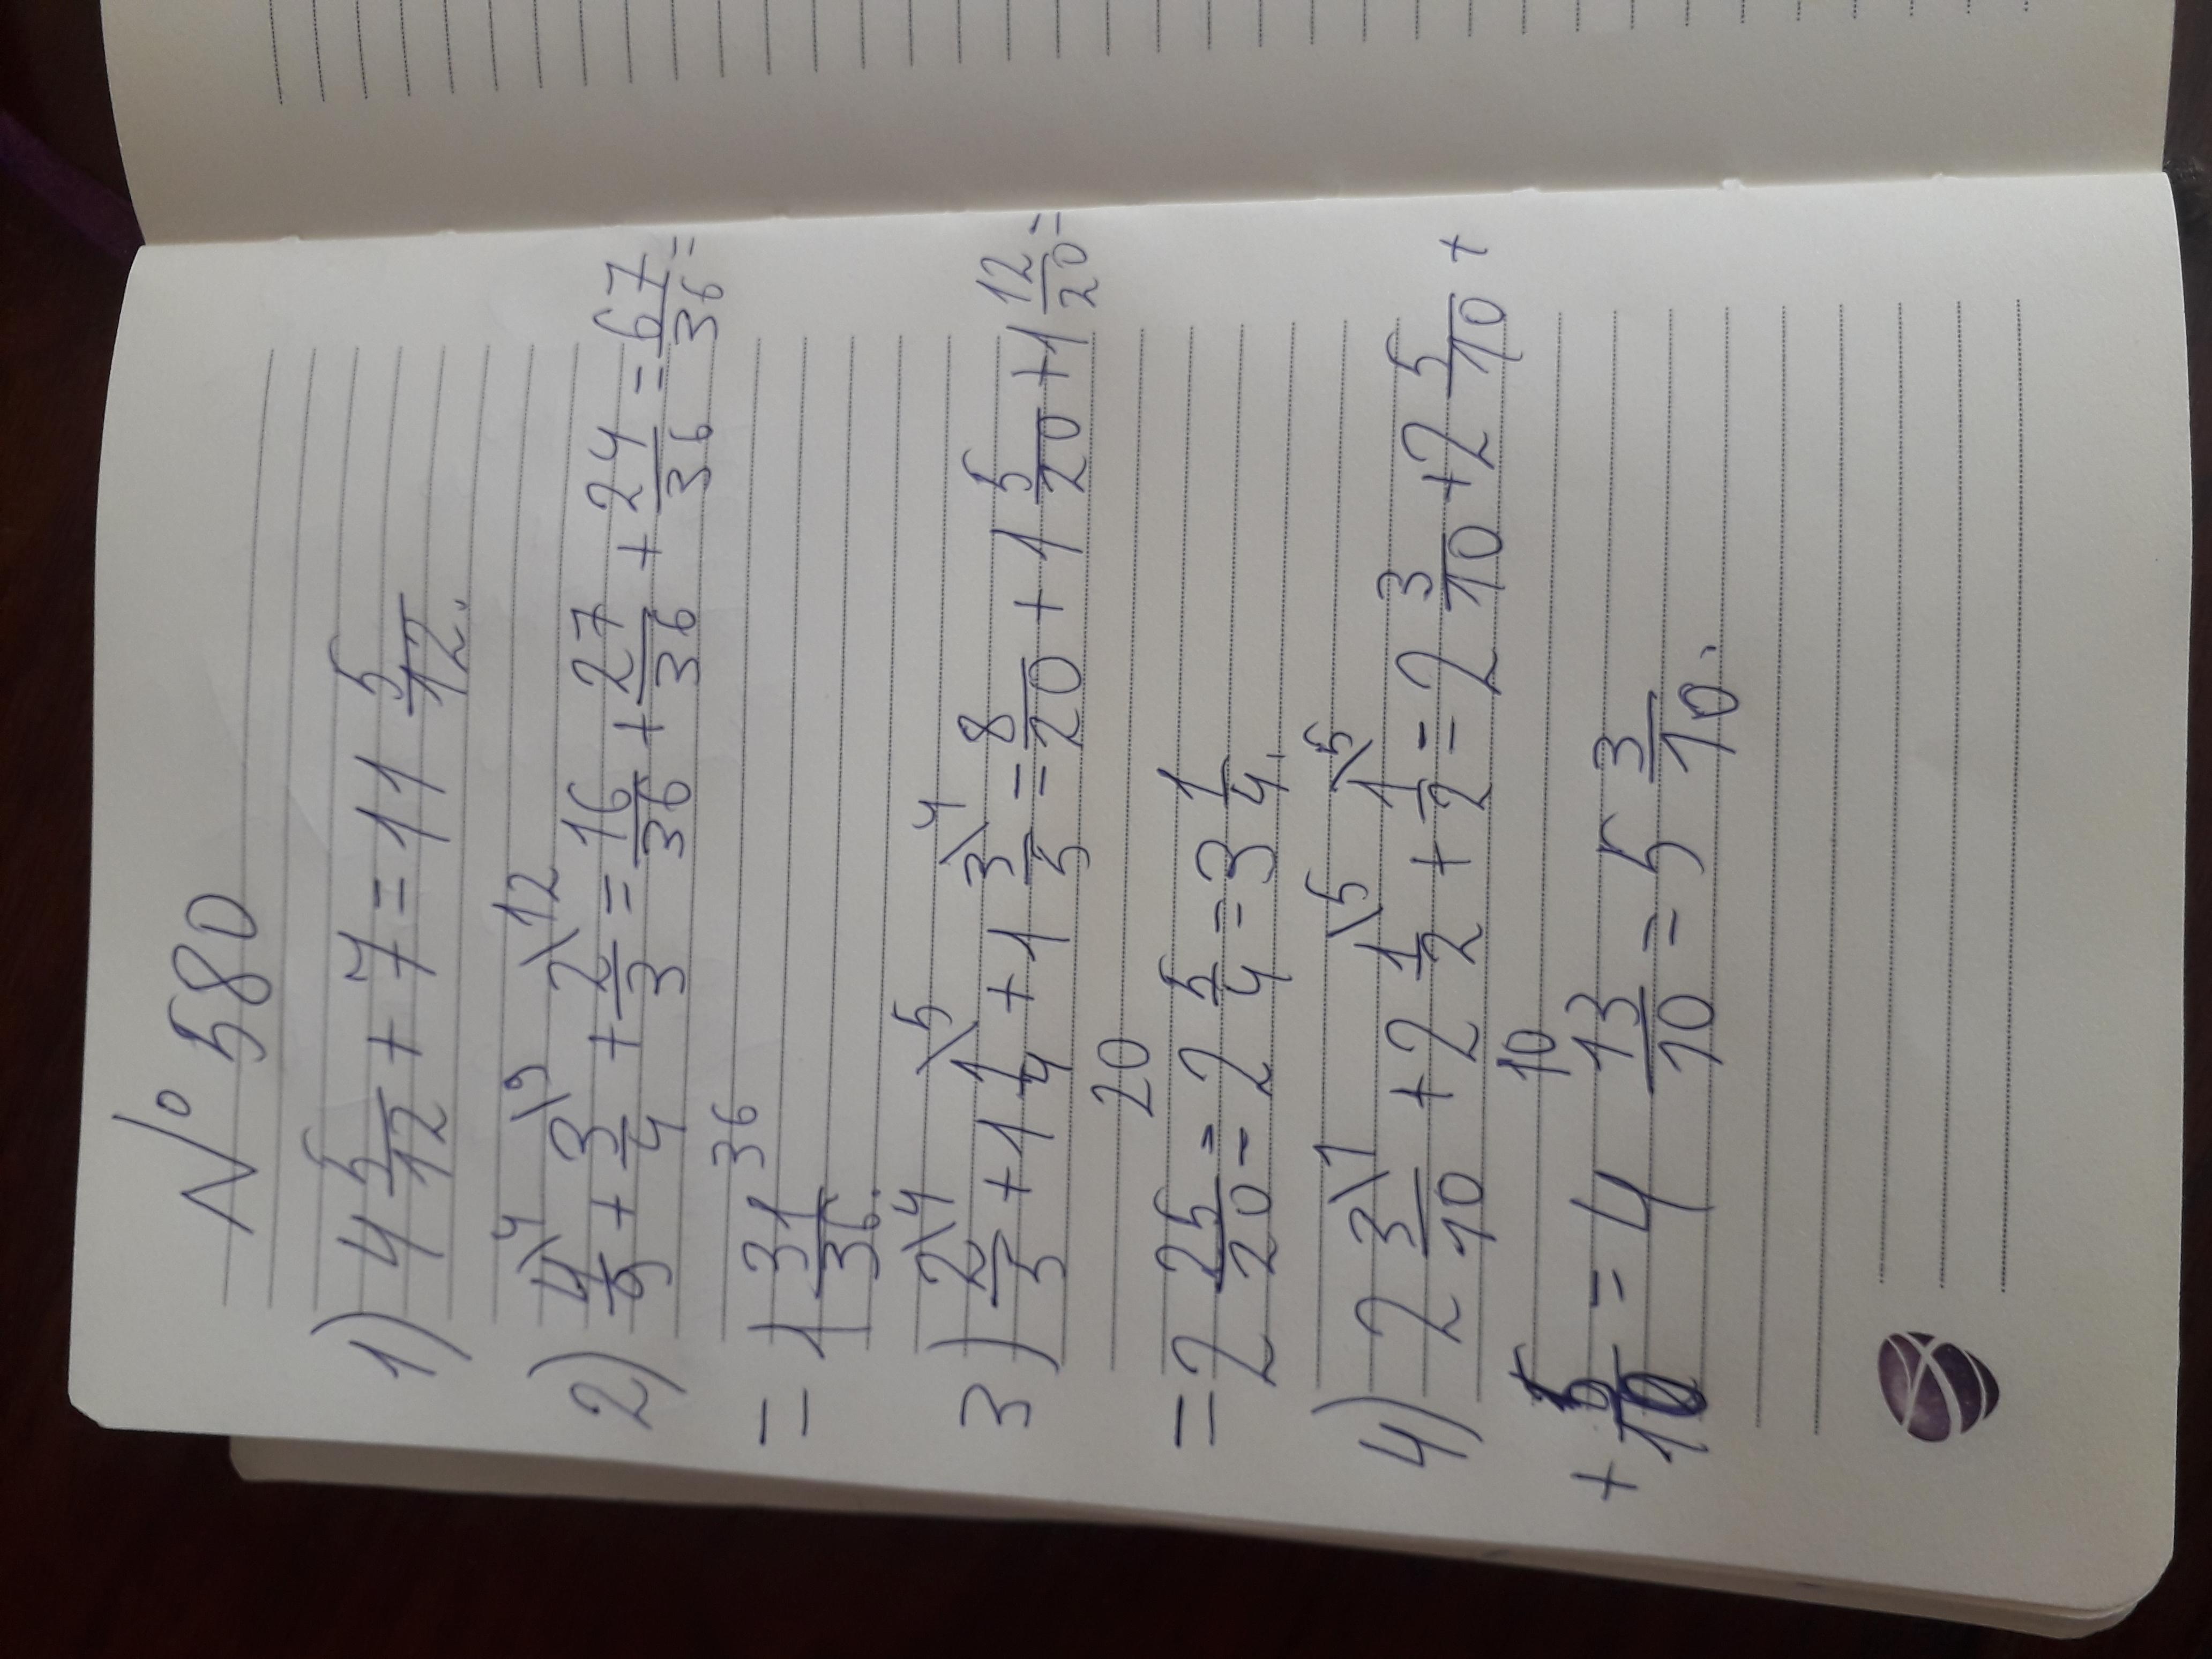 № 580
1) 4 5/12 + 7 = 11 5/12.
2) 4/9 \4 + 3/4 \9 + 2/3 \12 = 16/36 + 27/36 + 24/36 = 67/36 =
36
= 1 31/36.
3) 2/5 \4 + 1 1/4 \5 + 1 3/5 \4 = 8/20 + 1 5/20 + 1 12/20 =
20
= 2 25/20 = 2 5/4 = 3 1/4.
4) 2 3/10 \1 + 2 1/2 \5 + 1/2 \5 = 2 3/10 + 2 5/10 +
10
+ 5/10 = 4 13/10 = 5 3/10.